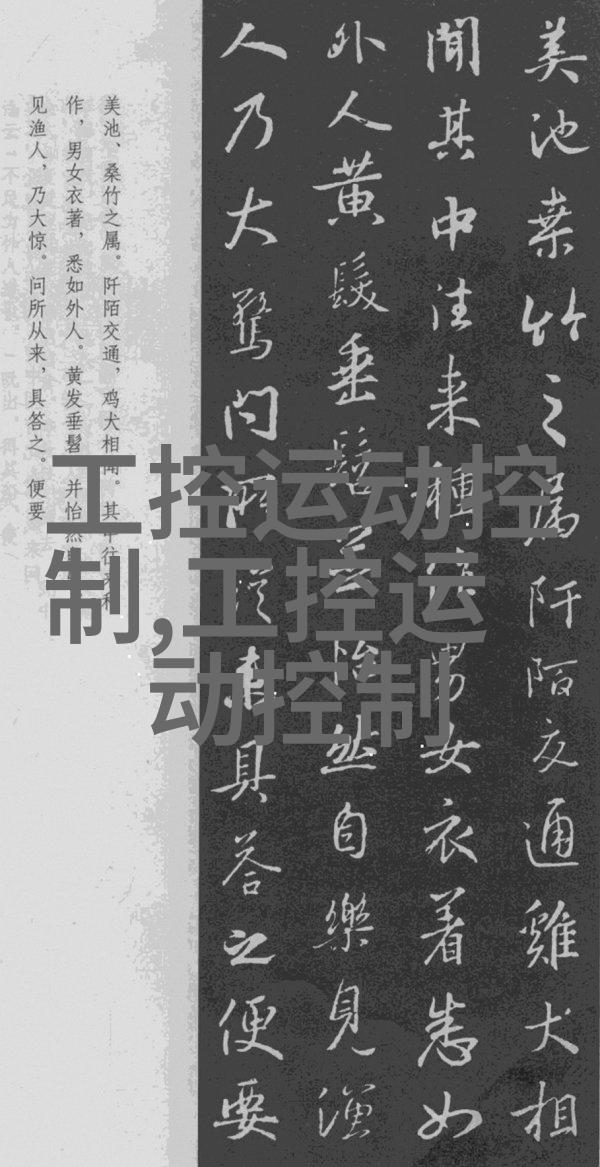 美池桒竹之属阡陌交通雞犬相
聞其中往来種作男女衣着悉如
外人黄髮垂髫並怡然自樂見漁
人乃大驚问所從来具答之便要
美池、桑竹之属。阡陌交通，鸡犬相闻。其中往来种
作，男女衣著，悉如外人。黄发垂髫，并怡然
见渔人，乃大惊。问所从来，具答之。便要
工控运动控
制,工控运
动控制